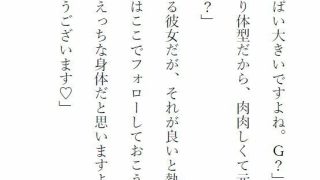 ぱい大きいですよね。G？」
り体型だから、肉肉しくて元
？」
る彼女だが、それが良いと熱
はここでフォローしておこう
えっちな身体だと思いますよ
うございます♡」